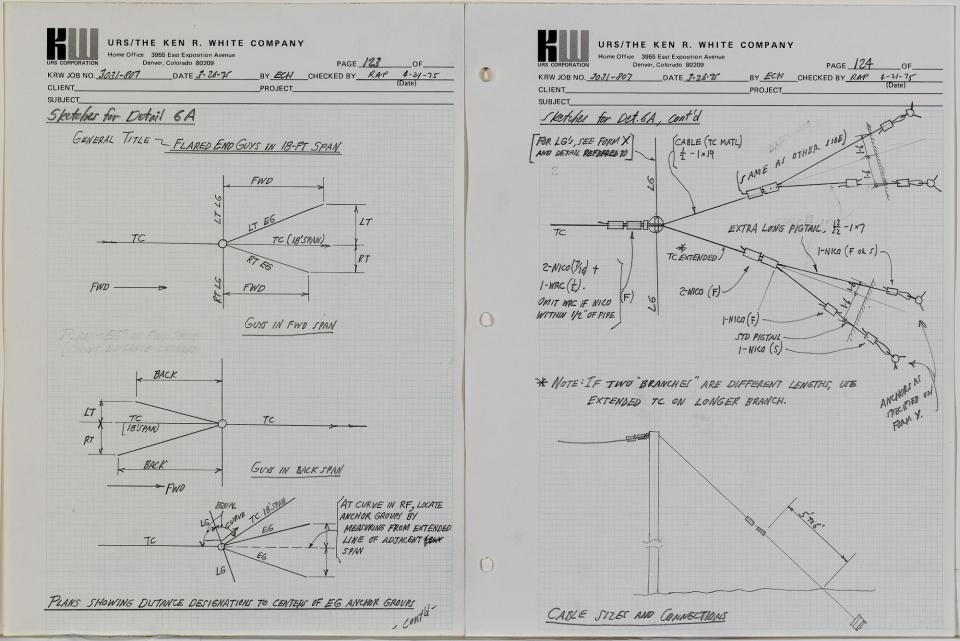 KW
URS CORPORATION
URS/THE KEN R. WHITE COMPANY
Home Office 3955 East Exposition Avenue
Denver, Colorado 80209
PAGE 123 OF
KRW JOB NO. 3031-807 DATE 3-26-75 BY ECH CHECKED BY RAP 4-21-75
(Date)
CLIENT PROJECT
SUBJECT
Sketches for Detail 6A
GENERAL TITLE ~ FLARED END GUYS IN 18-FT SPAN
FWD
LT LG
LT EG
LT
TC
TC (18' SPAN)
RT EG
RT
FWD
RT LG
FWD
GUYS IN FWD SPAN
BACK
LT
TC
(18' SPAN)
TC
RT
BACK
GUYS IN BACK SPAN
FWD
EQUAL
LG
CURVE
TC 18' SPAN
EG
TC
EG
LG
AT CURVE IN RF, LOCATE
ANCHOR GROUPS BY
MEASURING FROM EXTENDED
LINE OF ADJACENT
SPAN
PLANS SHOWING DISTANCE DESIGNATIONS TO CENTERS OF EG ANCHOR GROUPS
- cont'd -
KW
URS CORPORATION
URS/THE KEN R. WHITE COMPANY
Home Office 3955 East Exposition Avenue
Denver, Colorado 80209
PAGE 124 OF
KRW JOB NO. 3031-807 DATE 3-26-75 BY ECH CHECKED BY RAP 4-21-75
(Date)
CLIENT PROJECT
SUBJECT
Sketches for Det. 6A, cont'd
FOR LG's, SEE FORM X
AND DETAIL REFERRED TO
CABLE (TC MATL)
1/2 - 1x19
(SAME AS OTHER SIDE)
LG
TC
EXTRA LONG PIGTAIL, - 1x7
* TC EXTENDED
1-NICO (F OR S)
2-NICO (7/16) +
1-WRC (1/2).
OMIT WRC IF NICO
WITHIN 1/2" OF PIPE
(F)
LG
2-NICO (F)
1-NICO (F)
STD PIGTAIL
1-NICO (S)
ANCHORS AS
SPECIFIED ON
FORM Y.
* NOTE: IF TWO "BRANCHES" ARE DIFFERENT LENGTHS, USE
EXTENDED TC ON LONGER BRANCH.
5' TO 6'
CABLE SIZES AND CONNECTIONS